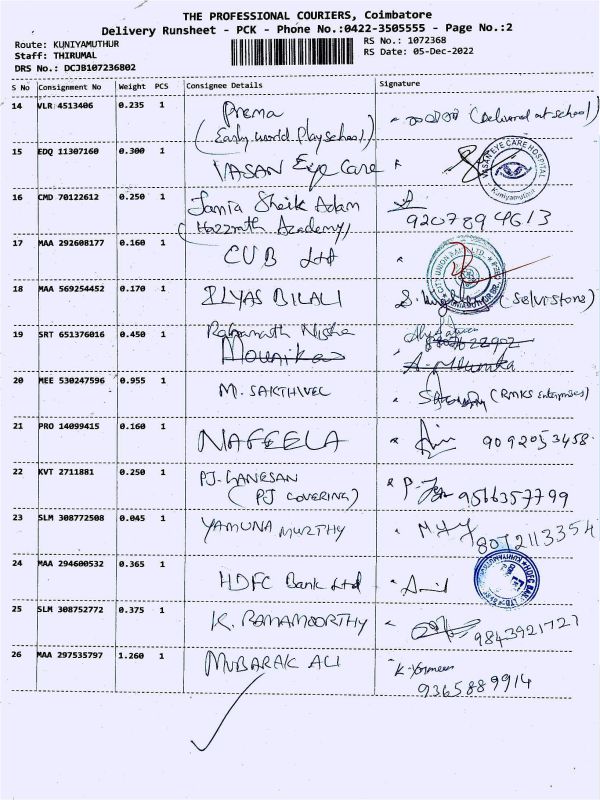 THE PROFESSIONAL COURIERS, Coimbatore
Delivery Runsheet - PCK - Phone No.:0422-3505555 - Page No.:2
Route: KUNIYAMUTHUR
RS No.: 1072368
Staff: THIRUMAL
RS Date: 05-Dec-2022
DRS No.: DCJB107236802
S No Consignment No Weight PCS Consignee Details Signature
14 VLR 4513406 0.235 1 Prema (Delivered at school)
(Early world Playschool)
15 EDQ 11307160 0.300 1 VASAN Eye Care
VASAN EYE CARE HOSPITAL
Kuniyamuthur
16 CMD 70122612 0.250 1 Jamia Sheik Adam
(Hazzrath Academy) 9207894613
17 MAA 292608177 0.160 1 CUB Ltd
18 MAA 569254452 0.170 1 ILYAS BILALI (Selvi stone)
19 SRT 651376016 0.450 1 Nisha
Mounika
20 MEE 530247596 0.955 1 M. SAKTHIVEL (RMKS Enterprises)
21 PRO 14099415 0.160 1 NAFEELA 9092053458
22 KVT 2711881 0.250 1 PJ. GANESAN
(PJ COVERING) 9566357799
23 SLM 308772508 0.045 1 YAMUNA MURTHY 8072113354
24 MAA 294600532 0.365 1 HDFC Bank Ltd
25 SLM 308752772 0.375 1 K. RAMAMOORTHY 9843921727
26 MAA 297535797 1.260 1 MUBARAK ALI
9365889914